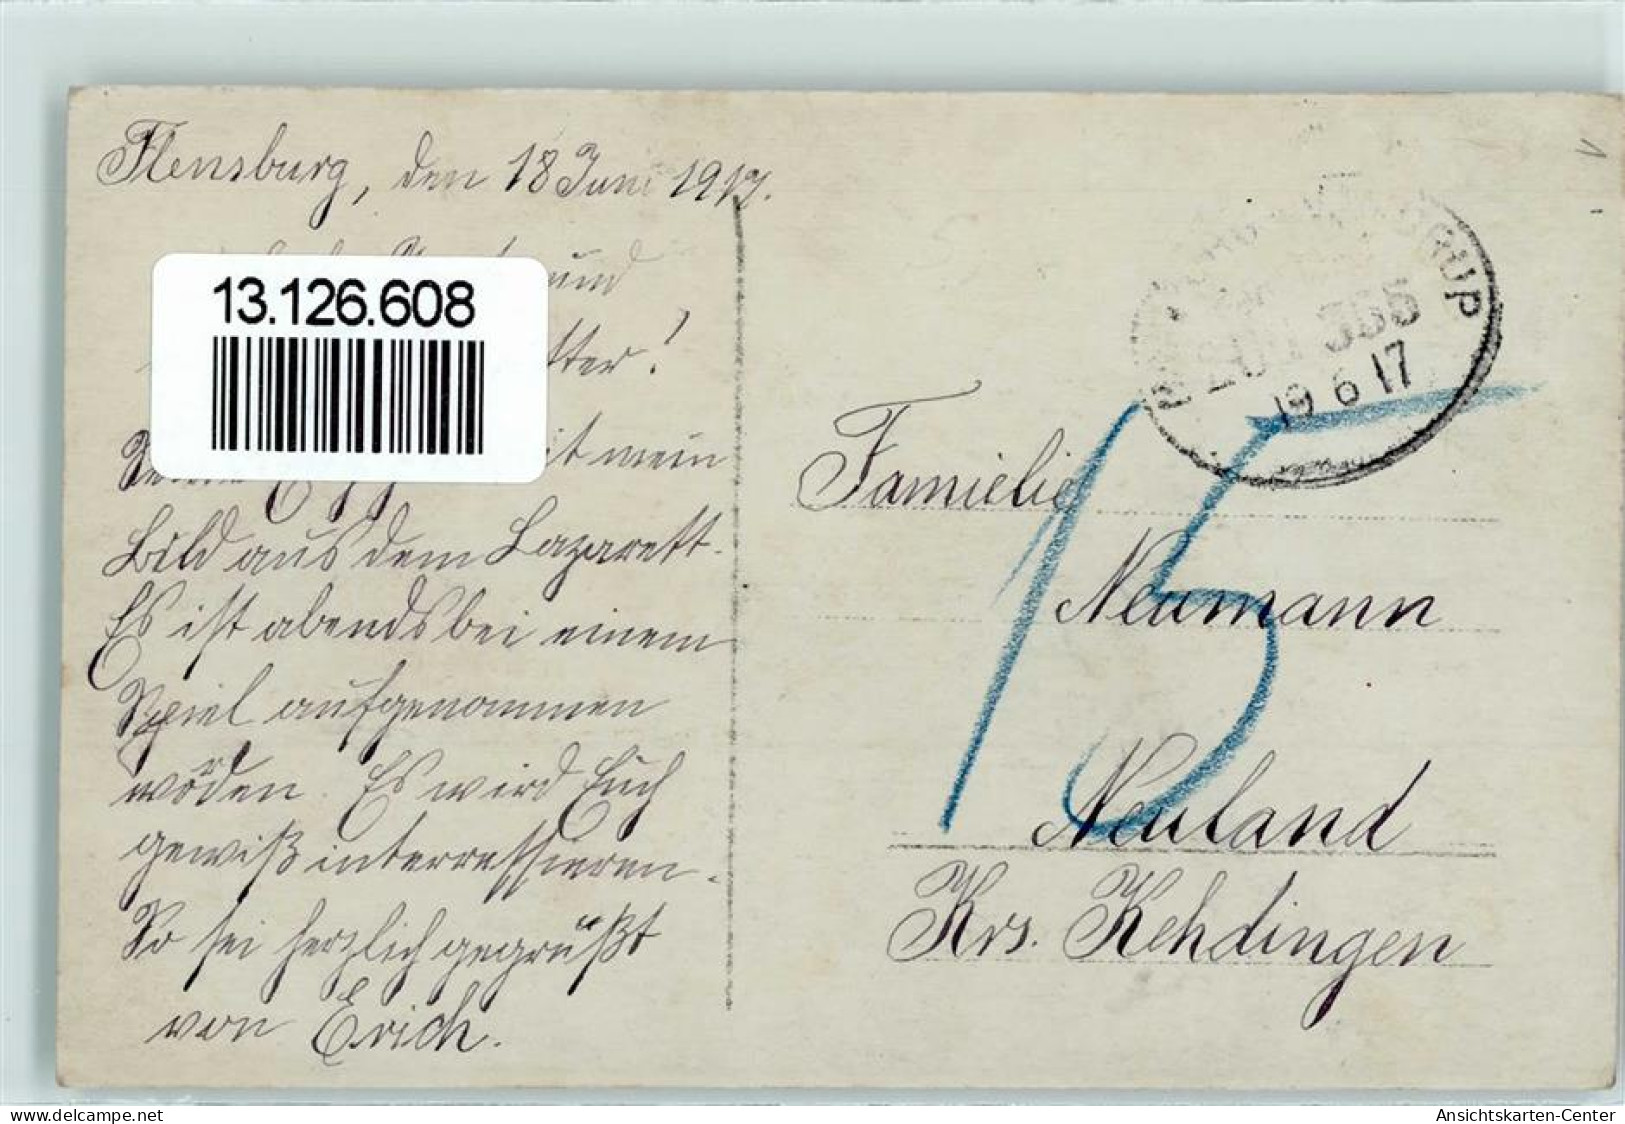 Flensburg, den 18 Juni 1917.
und
tter!
it mein
Bild aus dem Lazarett.
Es ist abends bei einem
Spiel aufgenommen
worden. Es wird Euch
gewiß interressieren.
So sei herzlich gegrüßt
von Erich.
13.126.608
RUP
ZUG 386
19 6 17
15
Familie
Neumann
Neuland
Krs. Kehdingen
1
delcampe.net
Ansichtskarten-Center